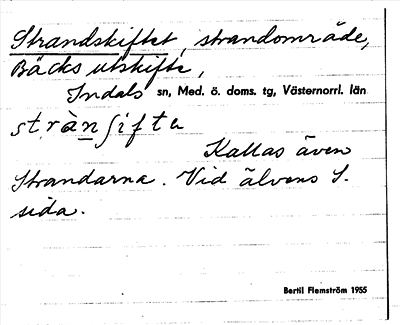 Strandskiftet, strandområde,
Bäcks utskifte,
Indals sn, Med. ö. doms. tg, Västernorrl. län
stràn ʃifte
Kallas även
Strandarna. Vid älvens S.
sida.
Bertil Flemström 1955